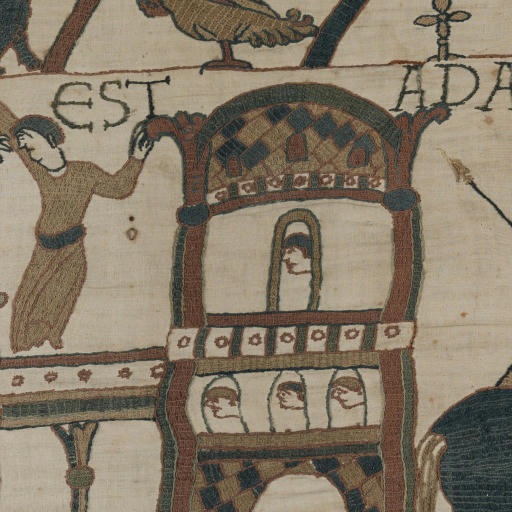 EST ADA